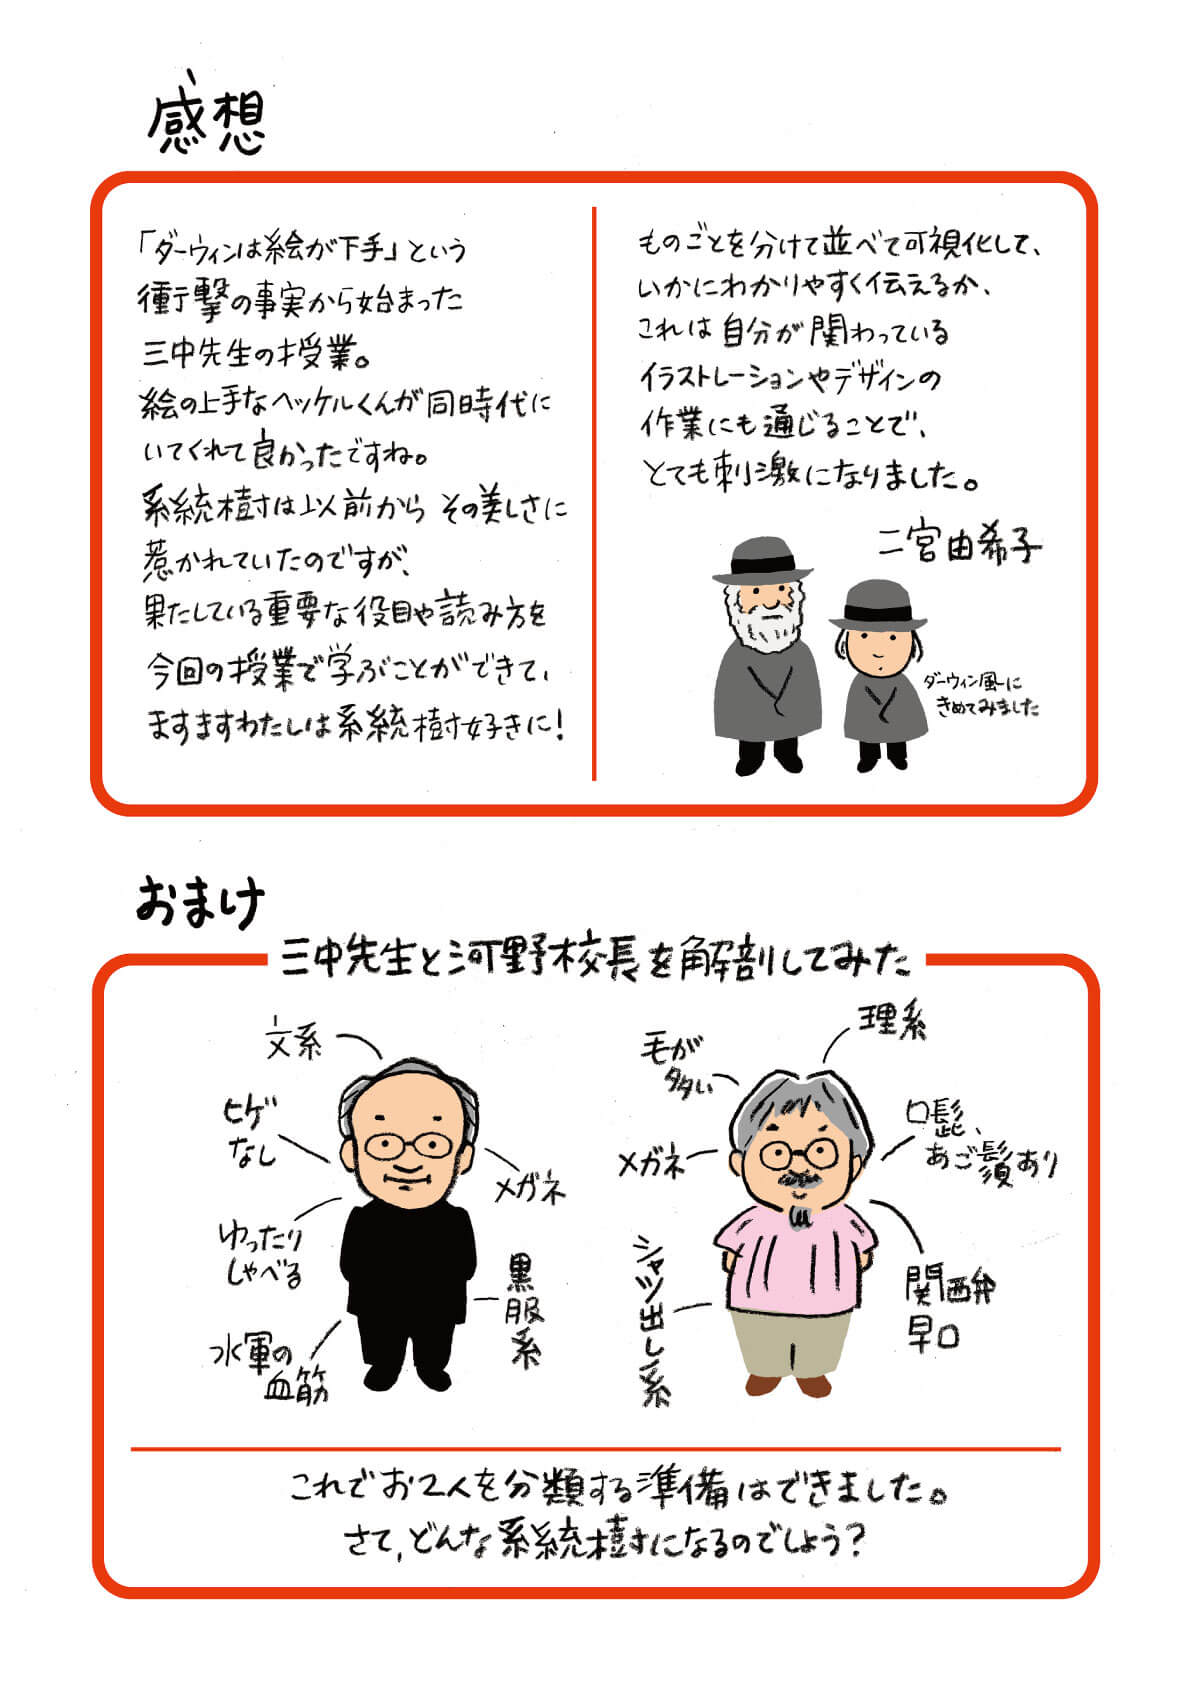 感想
「ダーウィンは絵が下手」という
衝撃の事実から始まった
三中先生の授業。
絵の上手なヘッケルくんが同時代に
いてくれて良かったですね。
系統樹は以前から その美しさに
惹かれていたのですが、
果たしている重要な役目や読み方を
今回の授業で学ぶことができて、
ますますわたしは系統樹好きに!
ものごとを分けて並べて可視化して、
いかにわかりやすく伝えるか、
これは自分が関わっている
イラストレーションやデザインの
作業にも通じることで、
とても刺激になりました。
二宮由希子
ダーウィン風に
きめてみました
おまけ
三中先生と河野校長を解剖してみた
文系
ヒゲ
なし
ゆったり
しゃべる
水軍の
血筋
メガネ
黒服系
毛が
多い
メガネ
シャツ出し系
理系
口髭、
あご鬚あり
関西弁
早口
これでお2人を分類する準備はできました。
さて,どんな系統樹になるのでしょう?